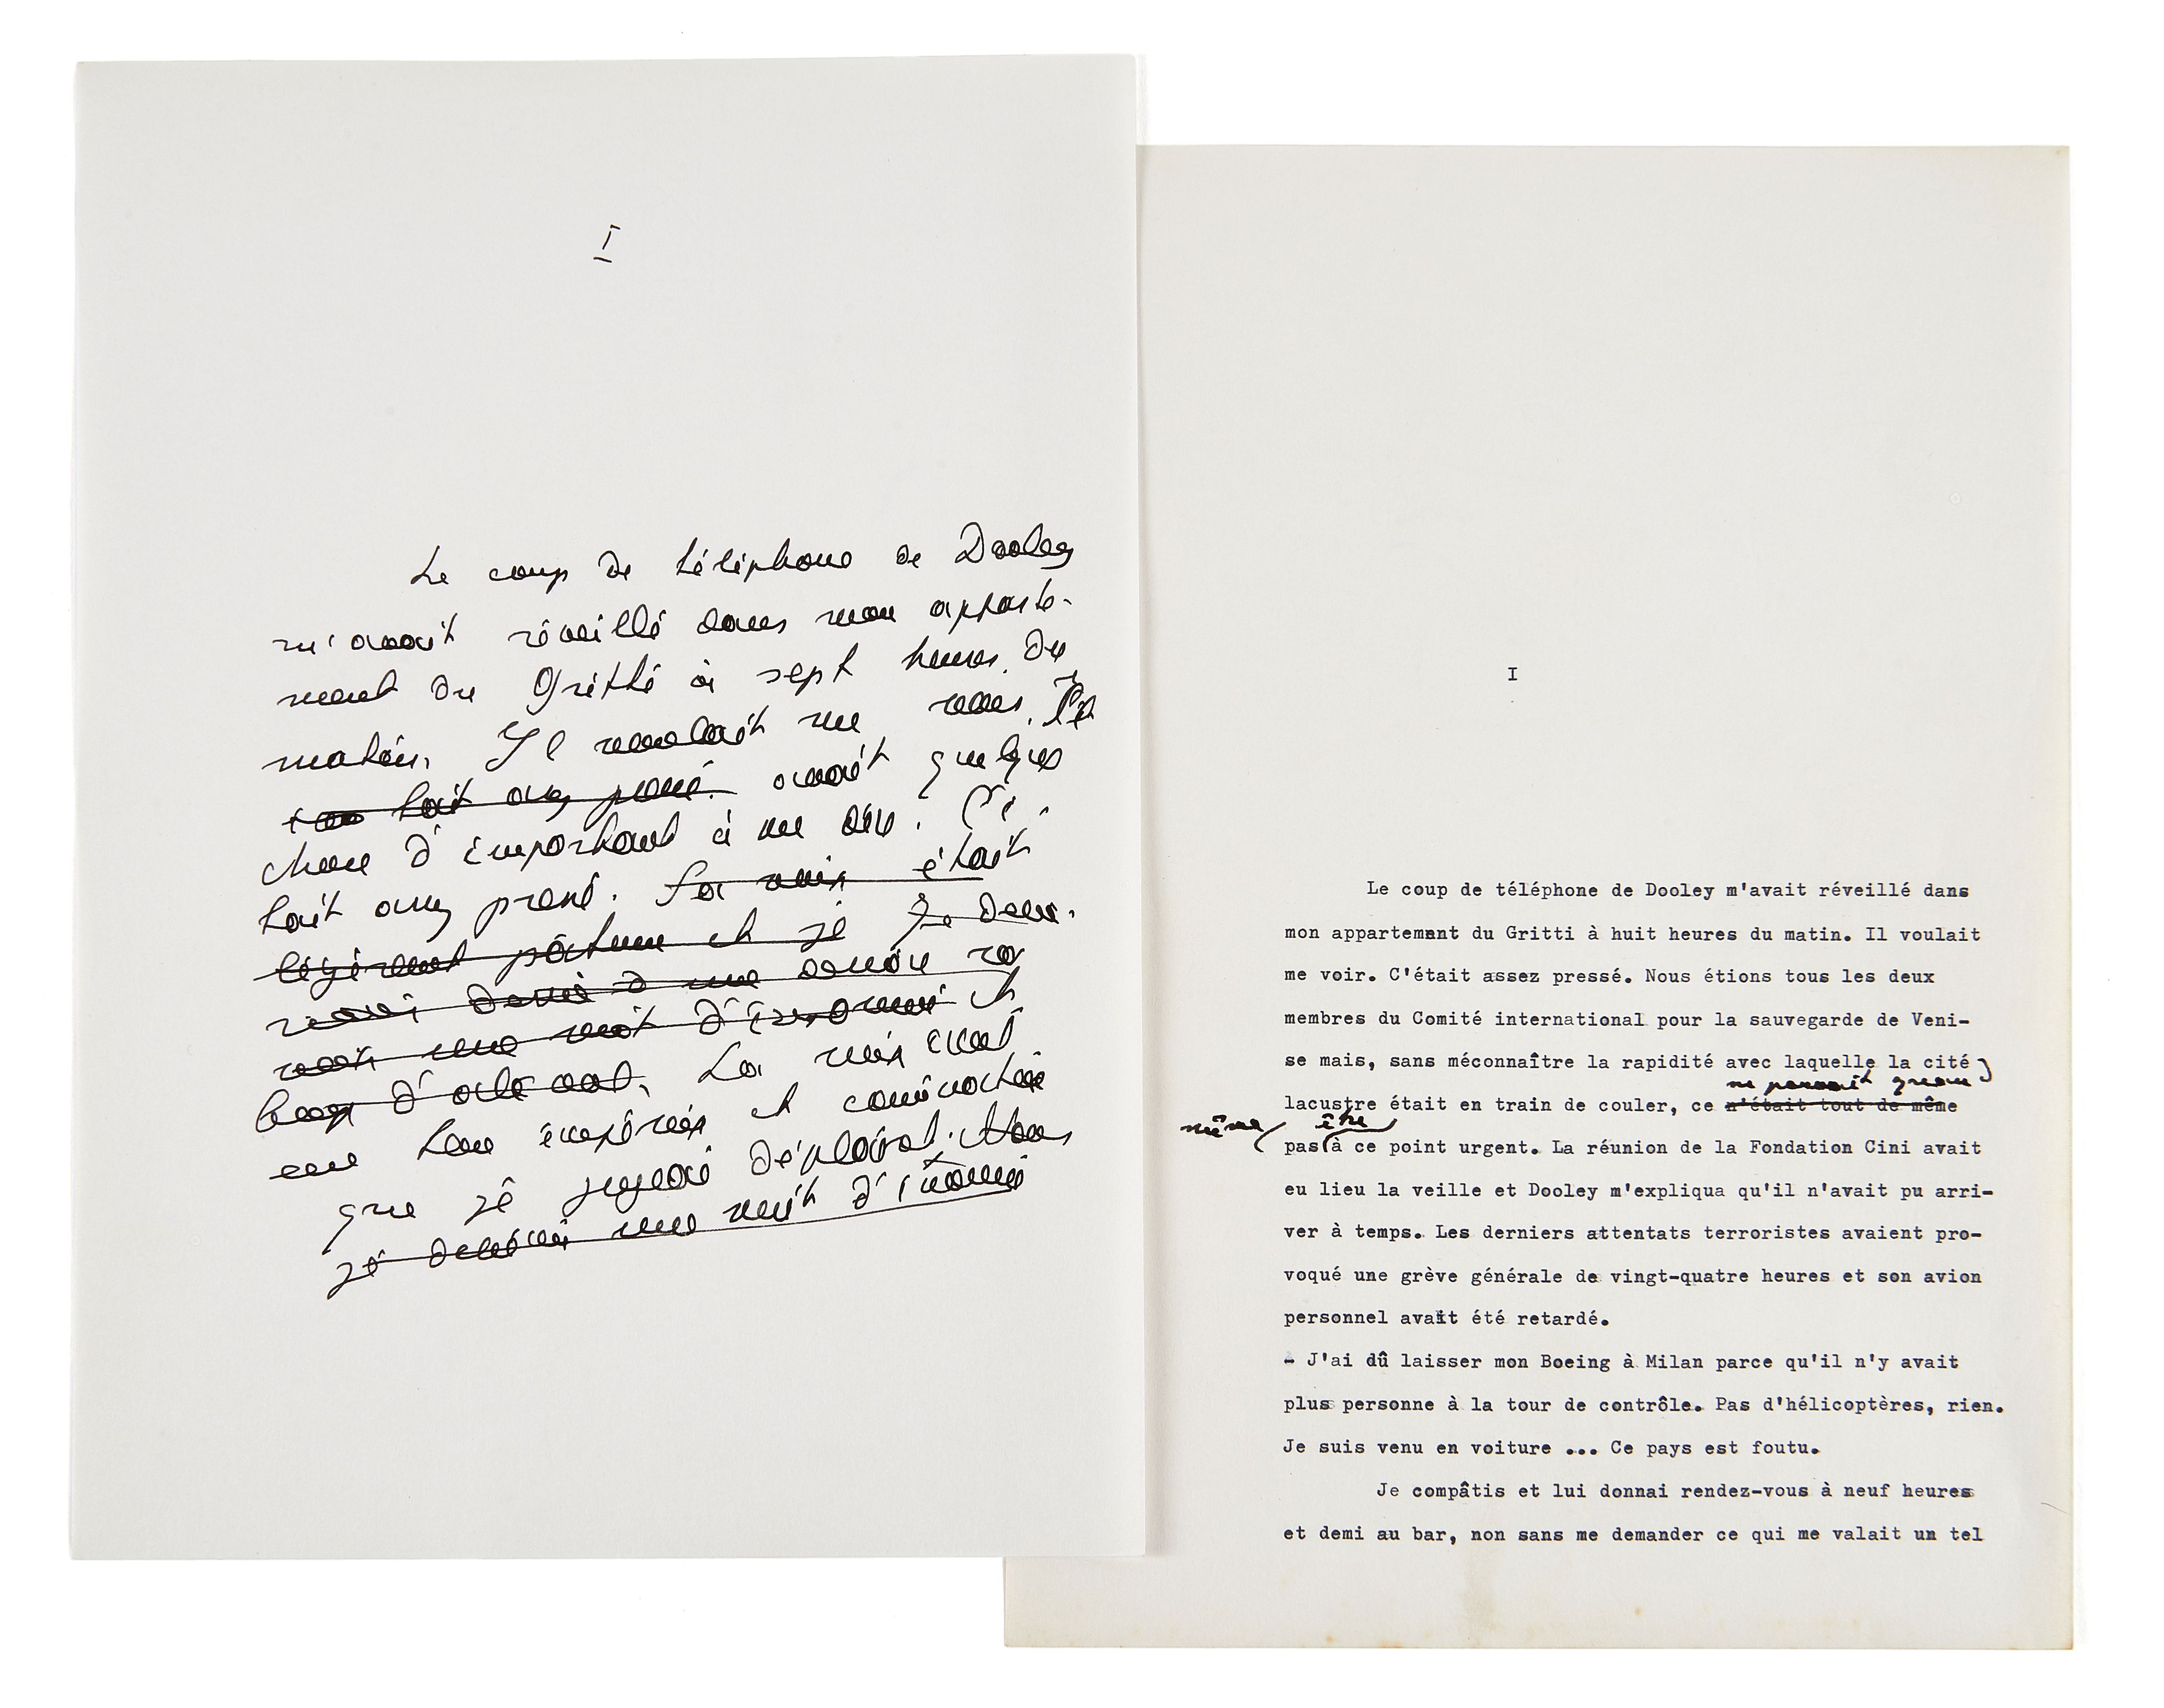 I
Le coup de téléphone de Dooley
m'avait réveillé dans mon apparte-
ment du Gritti à sept heures du
matin. Il voulait me voir. Il
tait assez pressé. avait quelque
chose d'important à me dire. C'é-
tait assez pressé. Sa voix était
légèrement pâteuse et je Je deme
et
La voix avait
une
que je jugeai déplaisant. Nous
je une nuit d'insomnie
I
Le coup de téléphone de Dooley m'avait réveillé dans
mon appartement du Gritti à huit heures du matin. Il voulait
me voir. C'était assez pressé. Nous étions tous les deux
membres du Comité international pour la sauvegarde de Veni-
se mais, sans méconnaître la rapidité avec laquelle la cité
ne pouvait
lacustre était en train de couler, ce n'était tout de même
même être
pas à ce point urgent. La réunion de la Fondation Cini avait
eu lieu la veille et Dooley m'expliqua qu'il n'avait pu arri-
ver à temps. Les derniers attentats terroristes avaient pro-
voqué une grève générale de vingt-quatre heures et son avion
personnel avait été retardé.
- J'ai dû laisser mon Boeing à Milan parce qu'il n'y avait
plus personne à la tour de contrôle. Pas d'hélicoptères, rien.
Je suis venu en voiture ... Ce pays est foutu.
Je compâtis et lui donnai rendez-vous à neuf heures
et demi au bar, non sans me demander ce qui me valait un tel